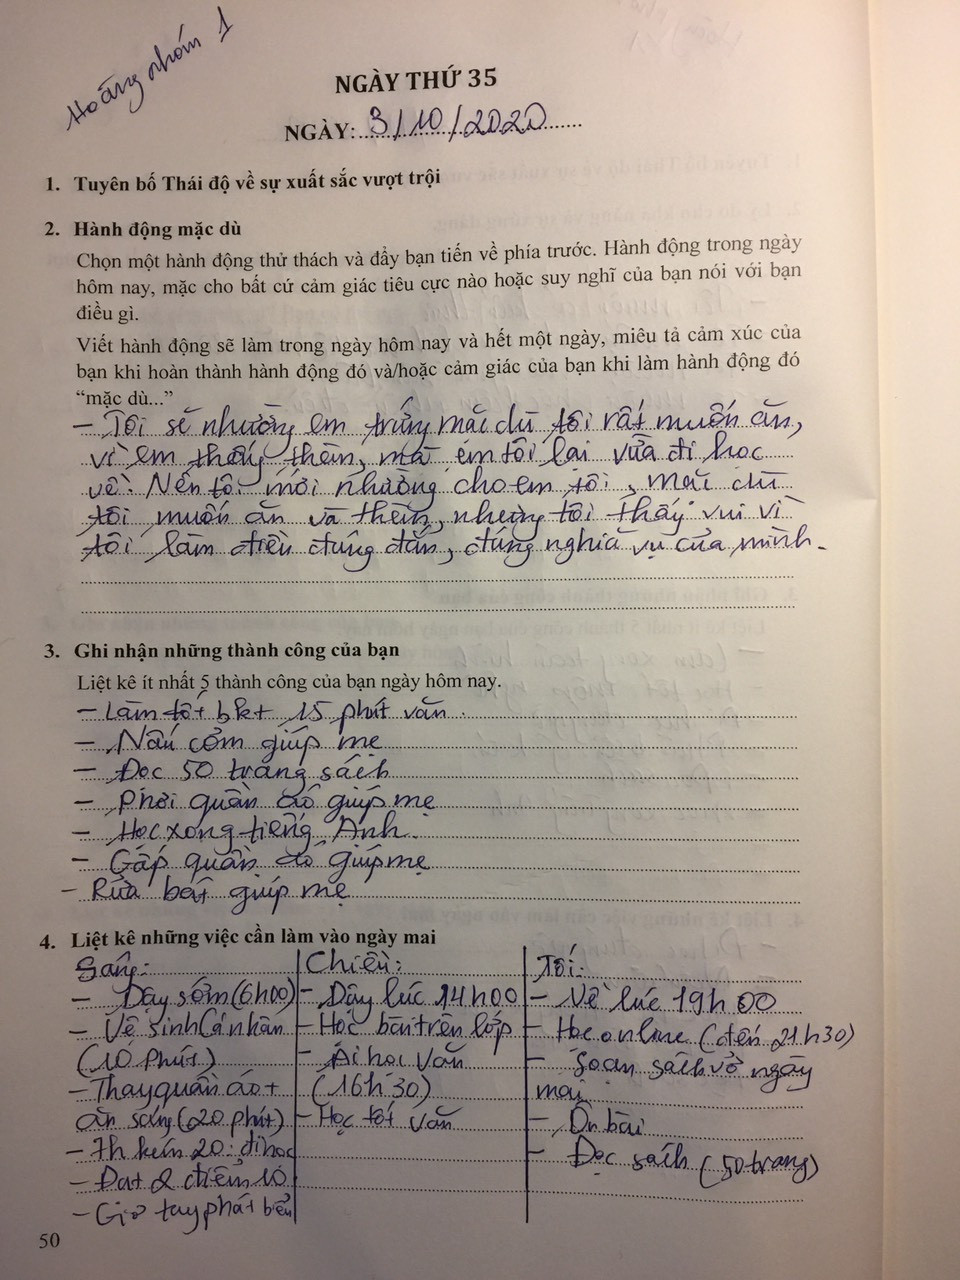 Hoàng nhóm 1
NGÀY THỨ 35
NGÀY: 3/10/2020
1. Tuyên bố Thái độ về sự xuất sắc vượt trội
2. Hành động mặc dù
Chọn một hành động thử thách và đẩy bạn tiến về phía trước. Hành động trong ngày
hôm nay, mặc cho bất cứ cảm giác tiêu cực nào hoặc suy nghĩ của bạn nói với bạn
điều gì.
Viết hành động sẽ làm trong ngày hôm nay và hết một ngày, miêu tả cảm xúc của
bạn khi hoàn thành hành động đó và/hoặc cảm giác của bạn khi làm hành động đó
“mặc dù...”
- Tôi sẽ nhường em trứng mặc dù tôi rất muốn ăn,
vì em thấy thèm, mà em tôi lại vừa đi học
về. Nên tôi mới nhường cho em tôi, mặc dù
tôi muốn ăn và thèm, nhưng tôi thấy vui vì
tôi làm điều đúng đắn, đúng nghĩa vụ của mình.
3. Ghi nhận những thành công của bạn
Liệt kê ít nhất 5 thành công của bạn ngày hôm nay.
- Làm tốt bkt 15 phút văn.
- Nấu cơm giúp mẹ
- Đọc 50 trang sách
- Phơi quần áo giúp mẹ
- Học xong tiếng Anh.
- Gấp quần áo giúp mẹ
- Rửa bát giúp mẹ
4. Liệt kê những việc cần làm vào ngày mai
Sáng:
- Dậy sớm (6h00)
- Vệ sinh cá nhân
(10 phút)
- Thay quần áo +
ăn sáng (20 phút)
- 20: đi học
- Đạt 2 điểm 10
- Giơ tay phát biểu
Chiều:
- Dậy lúc 14h00
- Học bài trên lớp
- Đi học Văn
(16h30)
- Học tốt văn
Tối:
- Về lúc 19h00
- Học online (đến 21h30)
- Soạn sách vở ngày
mai
- Ôn bài
- Đọc sách (50 trang)
50